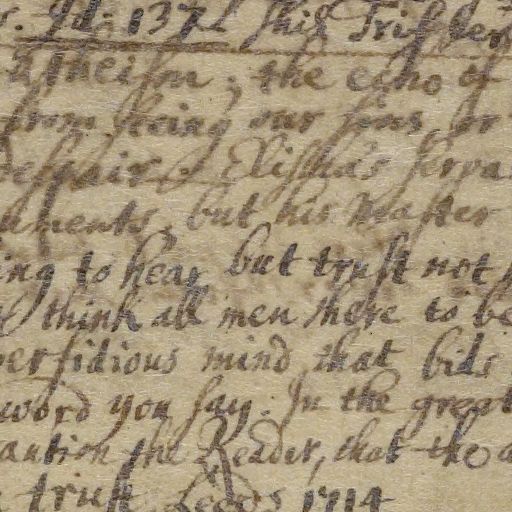 137 this Trifler
Atheism, the echo of
from seeing our sins, or
despair. Elisha's Serva
uments, but his Master
ing to hear but trust not
think all men there to be
perfidious mind that bids
word you say. In the great
aution the Reader, that the a
trust Leeds 1714